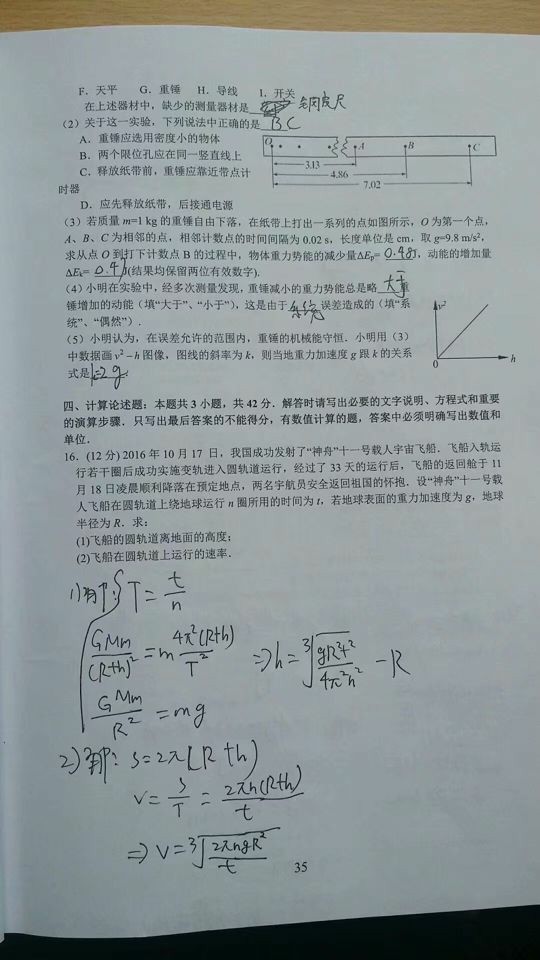 F．天平　G．重锤　H．导线　I．开关
在上述器材中，缺少的测量器材是 钢皮尺
(2）关于这一实验，下列说法中正确的是 BC
A．重锤应选用密度小的物体
B．两个限位孔应在同一竖直线上
C．释放纸带前，重锤应靠近带点计
时器
D．应先释放纸带，后接通电源
O A B C
3.13
4.86
7.02
(3）若质量 m=1 kg 的重锤自由下落，在纸带上打出一系列的点如图所示，O 为第一个点，
A、B、C 为相邻的点，相邻计数点的时间间隔为 0.02 s，长度单位是 cm，取 g=9.8 m/s²，
求从点 O 到打下计数点 B 的过程中，物体重力势能的减少量ΔEp= 0.48J，动能的增加量
ΔEk= 0.47J(结果均保留两位有效数字).
(4）小明在实验中，经多次测量发现，重锤减小的重力势能总是略 大于 重
锤增加的动能（填“大于”、“小于”），这是由于 系统 误差造成的（填“系
统”、“偶然”）．
(5）小明认为，在误差允许的范围内，重锤的机械能守恒．小明用（3）
中数据画 v²－h 图像，图线的斜率为 k，则当地重力加速度 g 跟 k 的关系
式是 k=2g．
v²
0 h
四、计算论述题：本题共 3 小题，共 42 分．解答时请写出必要的文字说明、方程式和重要
的演算步骤．只写出最后答案的不能得分，有数值计算的题，答案中必须明确写出数值和
单位．
16．(12 分) 2016 年 10 月 17 日，我国成功发射了“神舟”十一号载人宇宙飞船．飞船入轨运
行若干圈后成功实施变轨进入圆轨道运行，经过了 33 天的运行后，飞船的返回舱于 11
月 18 日凌晨顺利降落在预定地点，两名宇航员安全返回祖国的怀抱．设“神舟”十一号载
人飞船在圆轨道上绕地球运行 n 圈所用的时间为 t，若地球表面的重力加速度为 g，地球
半径为 R．求：
(1)飞船的圆轨道离地面的高度；
(2)飞船在圆轨道上运行的速率．
1) T=t/n
GMm/(R+h)²=m4π²(R+h)/T² ⇒h=∛(gR²t²/4π²n²)－R
GMm/R²=mg
2) s=2π(R+h)
v=s/T=2πn(R+h)/t
⇒v=∛(2πngR²/t)
35